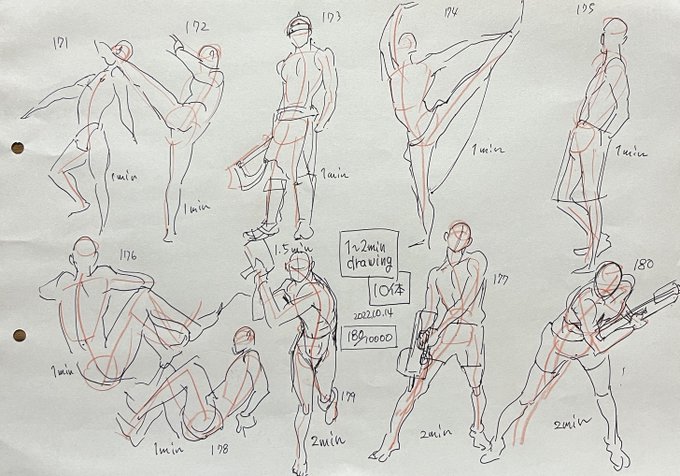 171
172
173
174
175
1min
1min
1min
1min
1min
176
1.5min
1~2min
drawing
10体
2022.10.14
180/10000
177
180
1min
1min
178
179
2min
2min
2min